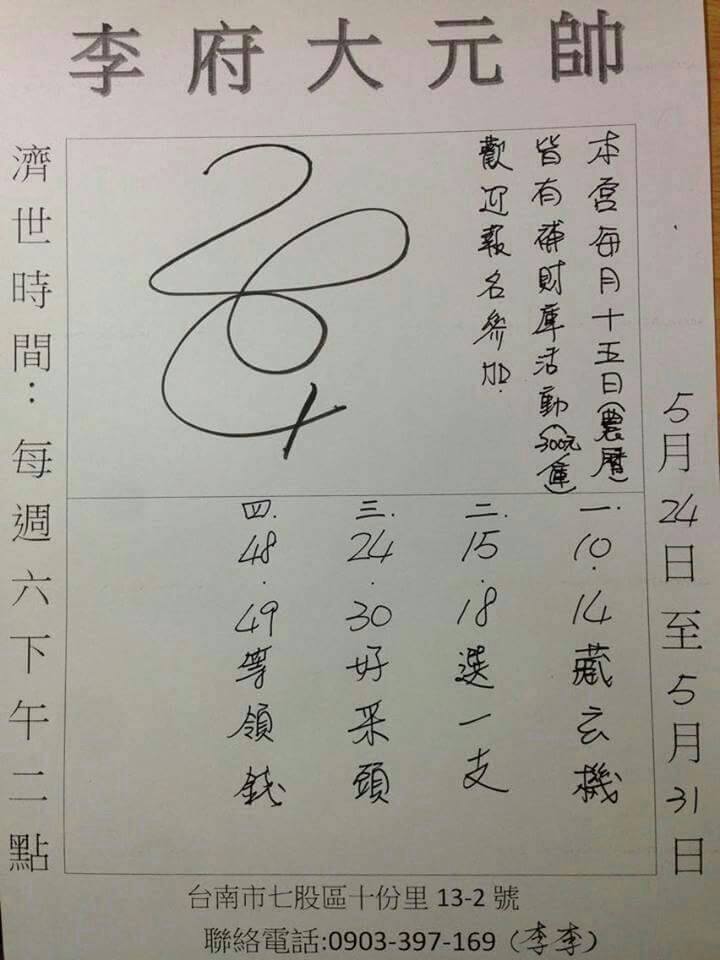 李府大元帥
本宮每月十五日(農曆)
皆有補財庫活動(300元/庫)
歡迎報名參加.
5月24日至5月31日
一.10.14藏玄機
二.15.18選一支
三.24.30好采頭
四.48.49等領錢
濟世時間:每週六下午二點
台南市七股區十份里13-2號
聯絡電話:0903-397-169(李李)